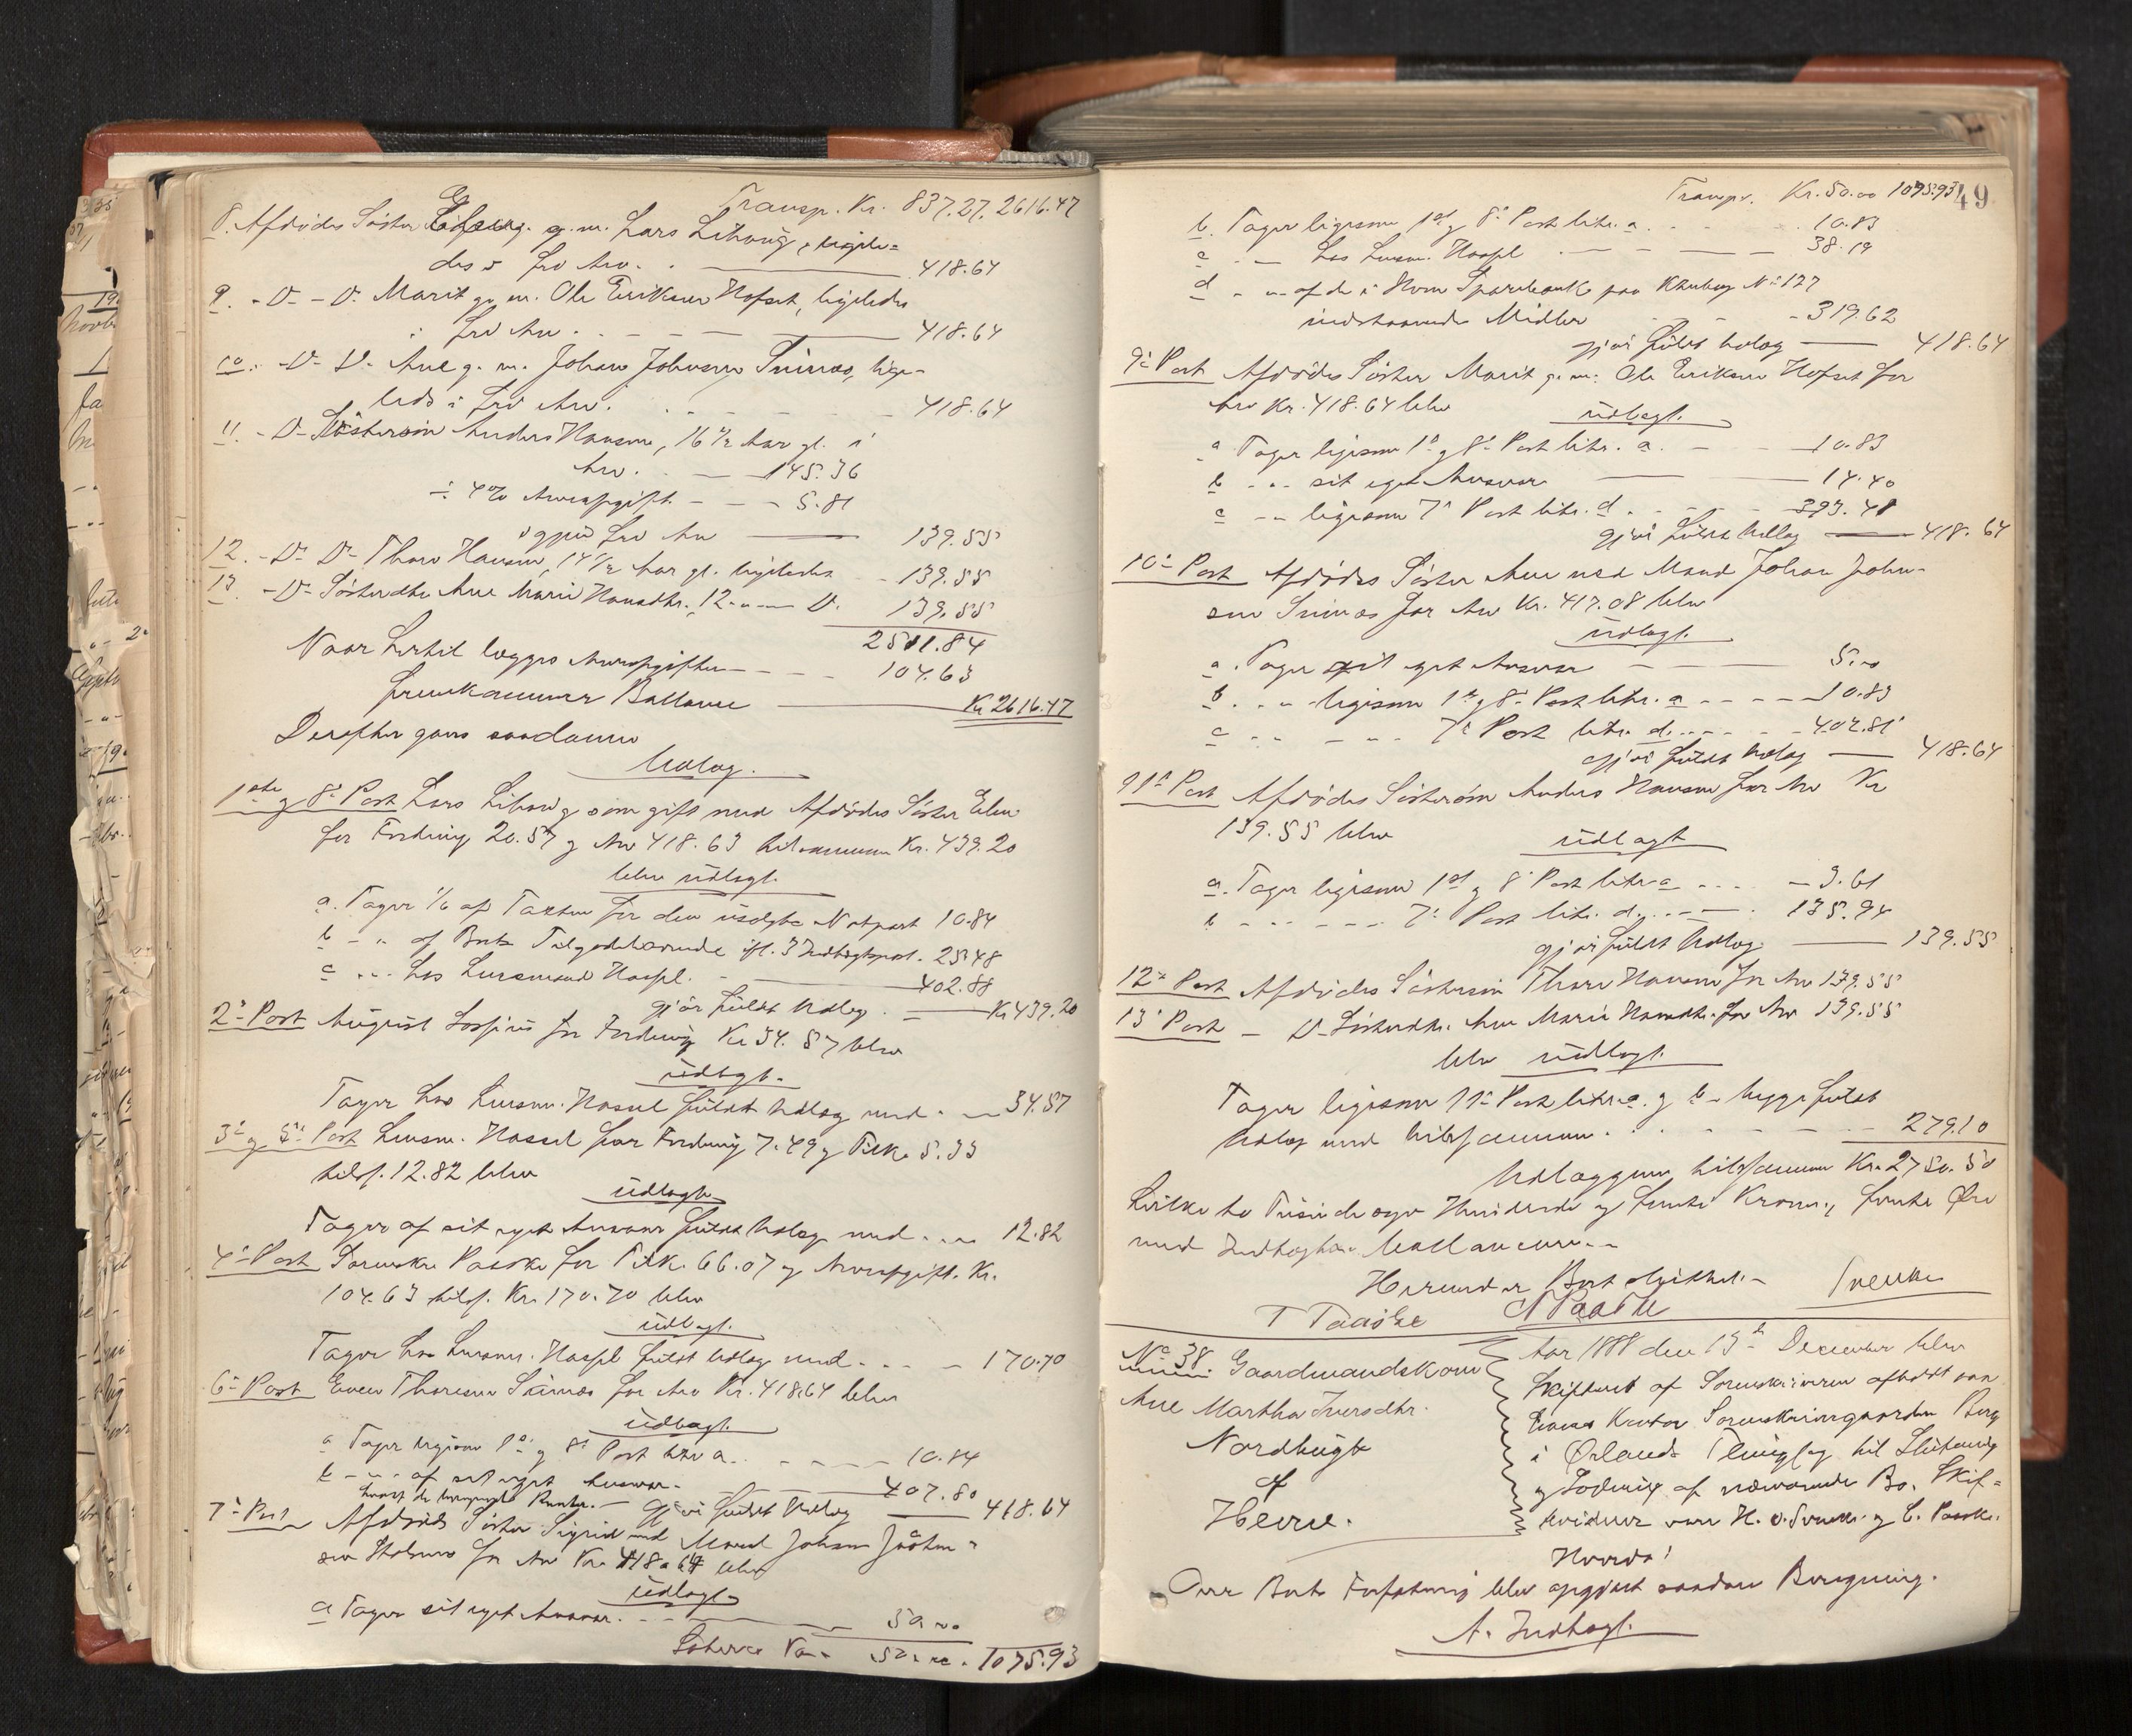 Transp. Kr. 837.27. 2616.47
8. Afdødes Søster g. m. Lars Lihaug, ligele=
des i Lod Arv. 418.64
9. -D- -D- Marit g. m. Ole Eriksen Hofset, ligeledes
i Lod Arv. 418.64
10. -D- D- Ane g. m. Johan Johnsen Sninæs, lige-
leds i Lod Arv. 418.64
11. -D- Søstersøn Anders Hansen, 16 1/2 Aar gl. i
Arv. 145.36
÷ 4% Arveafgift - - - 5.81
Lod Arv 139.55
12. -D- D- Thore Hansen, 14 1/2 Aar gl. ligeledes - 139.55
13. -D- Søsterdtr Ane Marie Hansdtr., 12 -„- D. 139.55
2511.84
Naar hertil lægges Arveafgiften - - - 104.63
fremkommer Ballance Kr 2616.47
Derefter gjøres saadanne
Udlæg.
1ste og 8de Post Lars Lihaug som gift med Afdødes Søster
for Fordring 20.57 og Arv 418.63 tilsammen Kr. 439.20
blev udlagt.
a. Tager 1/6 af Taxten for den usolgte Notpart 10.84
b - „ af Boets Tilgodehavende ifl. 3 Indtægtspost. 25.48
c „ „ hos Lensmand Hassel. 402.88
gjør fuldt Udlæg. Kr 439.20
2- Post August Lossius for Fordring Kr 34.57 blev
udlagt.
Tager hos Lensm. Hassel fuldt Udlæg med - - 34.57
3- og 5- Post Lensm. Hassel for Fordring 7.49 og Tilk. 5.33
tils. 12.82 blev
udlagt
Tager af sit eget Ansvar fuldt Udlæg med - - - 12.82
4- Post Sorenskr. Paaske for Tilk. 66.07 og Arveafgift. Kr.
104.63 tils. Kr. 170.70 blev
udlagt.
Tager hos Lensm. Hassel fuldt Udlæg med - - - 170.70
6- Post Even Thoresen for Arv Kr. 418.64 blev
udlagt.
a Tager ligesom 1- og 8- Post litr a. - - - 10.84
b - „ - af sit eget Ansvar - 407.80
gjør fuldt Udlæg 418.64
7- Post Afdødes Søster Sigrid med Mand Johan John-
sen for Arv Kr. 418.64 blev
udlagt
a Tager sit eget Ansvar. - - - 50.00
Lateres Kr. 50.00. 1075.93
Transp. Kr. 50.00 1075.93
49
b. Tager ligesom 1ste og 8- Post litr. a. 10.83
c - - - hos Lensm. Hassel 38.19
d - „ af de i Hem Sparebank paa Kontobog No 127
indstaaende Midler - 319.62
gjør fuldt Udlæg 418.64
9- Post Afdødes Søster Marit g. m. Ole Eriksen Hofset for
Arv Kr. 418.64 blev
udlagt.
a Tager ligesom 1- og 8- Post litr. a. - 10.83
b - - - sit eget Ansvar 14.40
c - - ligesom 7- Post litr. d. - - - 393.41
gjør fuldt Udlæg 418.64
10- Post Afdødes Søster Ane med Mand Johan John-
sen Sninæs for Arv Kr. 417.08 blev
udlagt.
a. Tager sit eget Ansvar 5.00
b. - „ - ligesom 1ste og 8- Post litr. a - - - 10.83
c - - - - 7- Post litr. d. - - - 402.81
gjør fuldt Udlæg 418.64
11- Post Afdødes Søstersøn Anders Hansen for Arv Kr
139.55 blev
udlagt
a. Tager ligesom 1ste og 8- Post litr a - - - 3.61
b - - - - - 7- Post litr. d. - - - 135.94
gjør fuldt Udlæg. 139.55
12- Post Afdødes Søstersøn Thore Hansen for Arv 139.55
13- Post - D- Søsterdtr. Ane Marie Hansdtr. for Arv 139.55
blev udlagt.
Tager ligesom 11- Post litr. a. og b. begge fuldt
Udlæg med tilsammen. 279.10
Udlæggene tilsammen Kr. 2750.50
hvilke to Tusinde syv Hundrede og femti Kroner, femti Øre
med Indtægten ballancere. -
Herunder Boet sluttet. -
T Paaske
No 38. Gaardmandskone
Ane Martha Iversdtr.
Nordbugt
af
Hevne.
Aar 1888 den 13de December blev
Skifteret af Sorenskriveren afholdt paa
Kontor Sorenskrivergaarden Berg
i Ørlands Thinglag til Slutning
og Lodning af nærværende Bo. Skif=
tevidner vare H. o. Svenke og C. Paaske.
Hvorda!
Over Boets Forfatning blev opgjort saadan Beregning.
A. Indtægt.